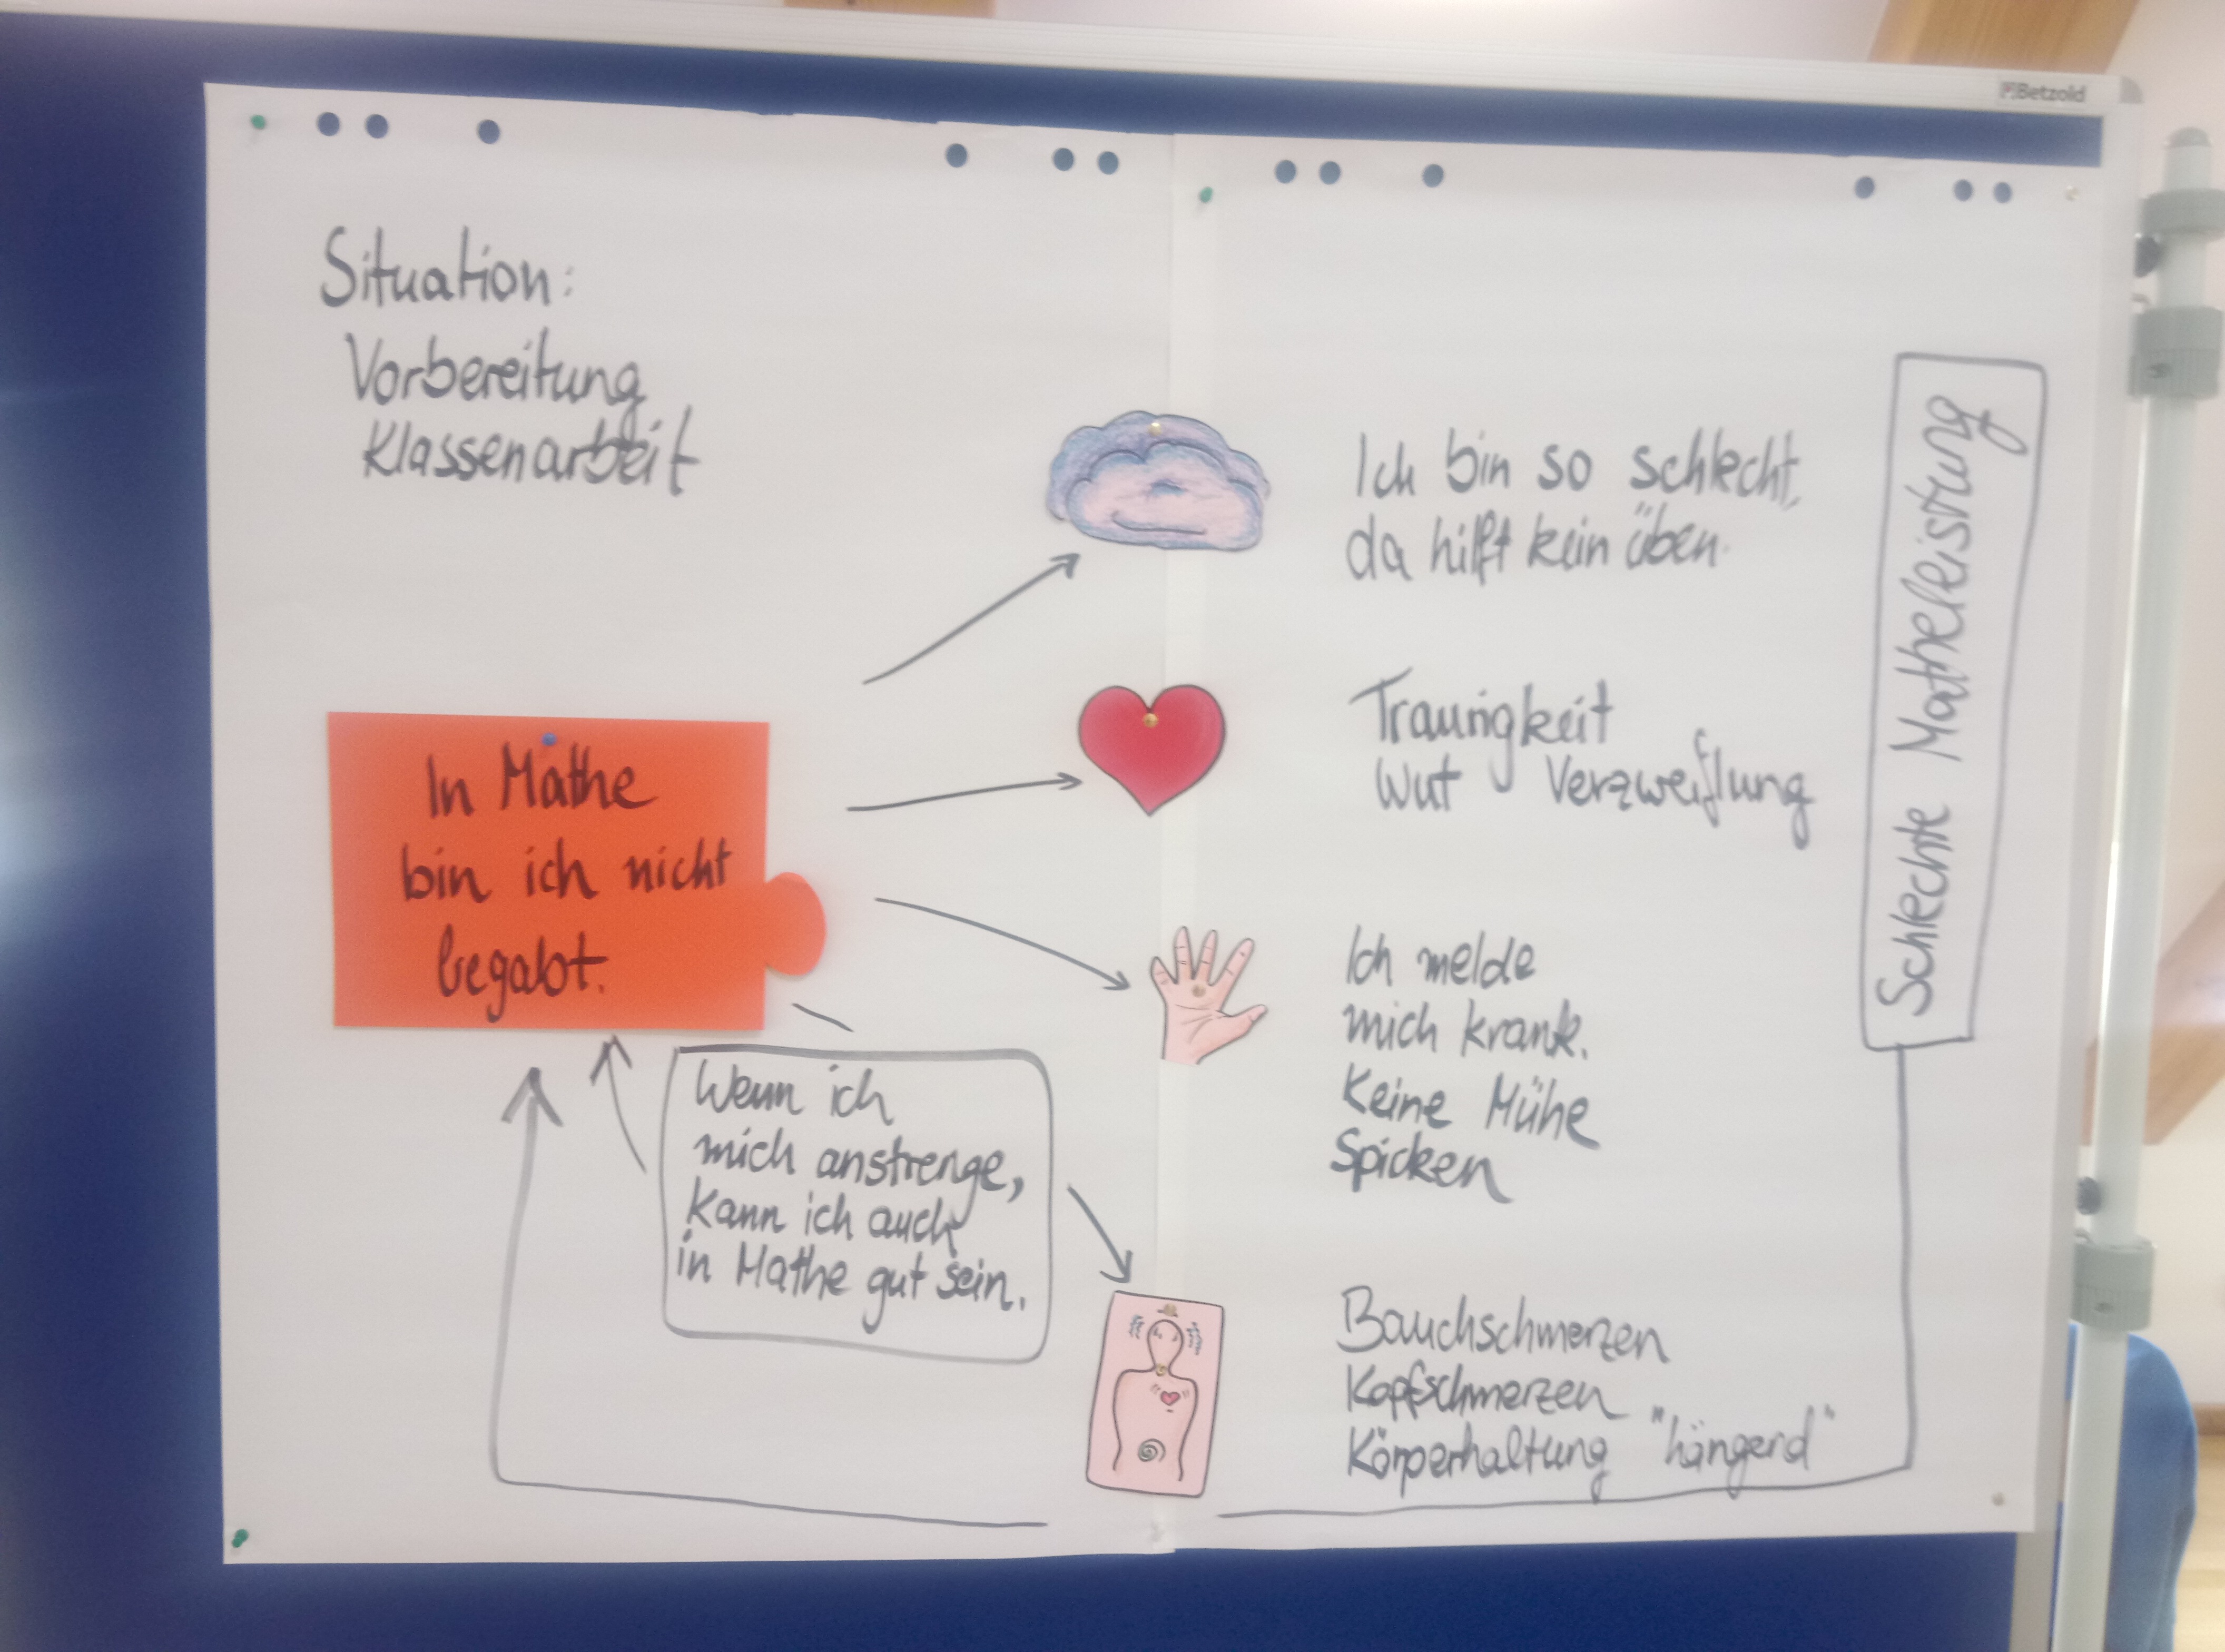 Betzold
Situation:
Vorbereitung
Klassenarbeit
In Mathe
bin ich nicht
begabt.
Wenn ich
mich anstrenge,
kann ich auch
in Mathe gut sein.
Ich bin so schlecht,
da hilft kein üben.
Traurigkeit
Wut Verzweiflung
Ich melde
mich krank.
Keine Mühe
Spicken
Bauchschmerzen
Kopfschmerzen
Körperhaltung "hängend"
Schlechte Matheleistung